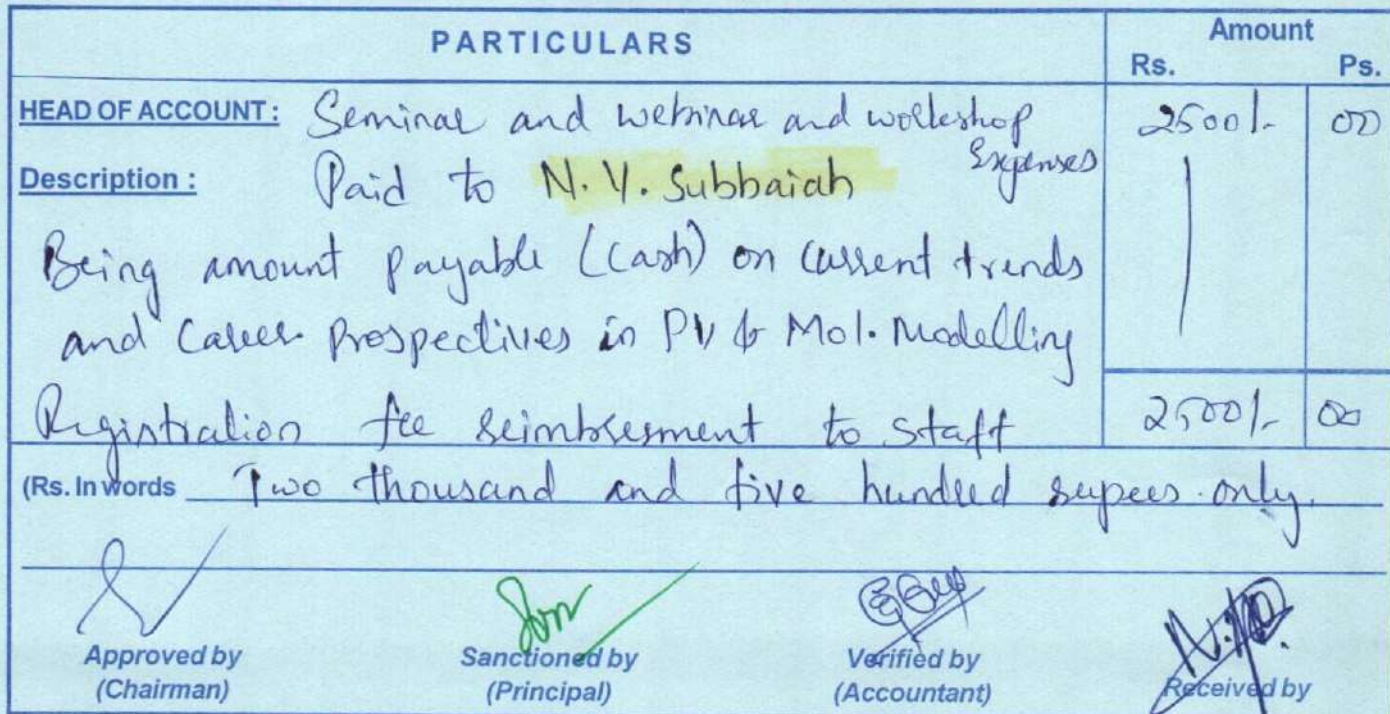 PARTICULARS
Amount
Rs. Ps.
HEAD OF ACCOUNT: Seminar and webinar and workshop Expenses 2500/- 00
Description : Paid to N. Y. Subbaiah
Being amount payable (Cash) on current trends
and Career Prospectives in PV & Mol. Modelling
Registration fee reimbresment to staff 2500/- 00
(Rs. In words Two thousand and five hundred rupees only.
Approved by Sanctioned by Verified by Received by
(Chairman) (Principal) (Accountant)